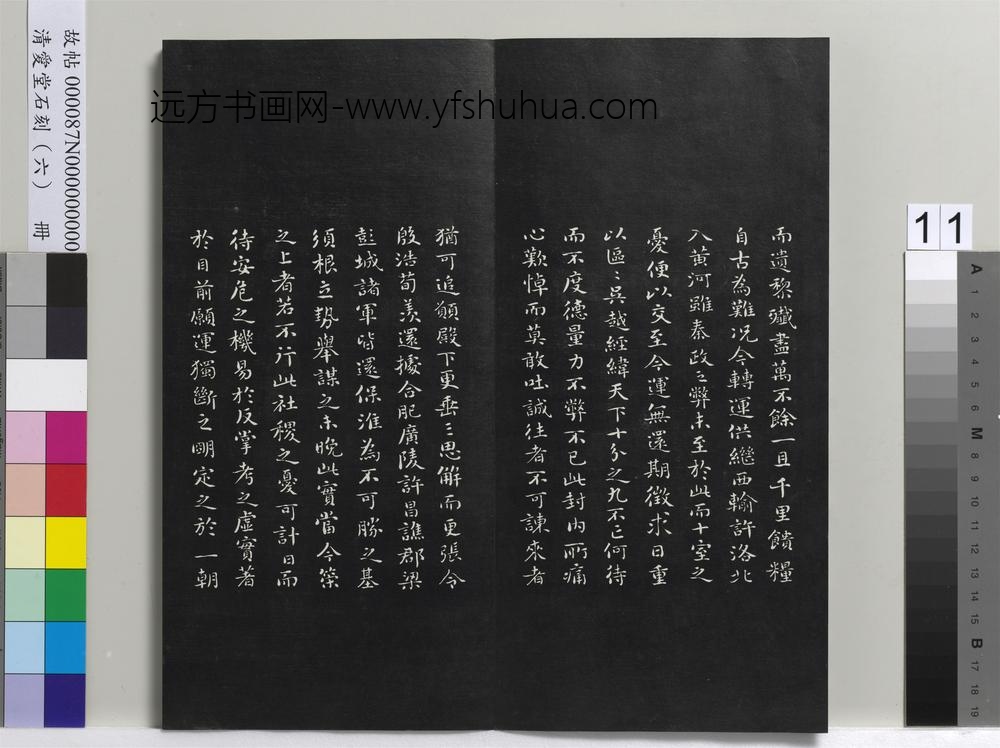 而遺黎殲盡萬不餘一且千里饋糧
自古為難况今轉運供繼西輸許洛北
入黃河雖秦政之弊未至於此而十室之
憂便以交至今運無還期徵求日重
以區〻吳越經緯天下十分之九不亡何待
而不度德量力不弊不已此封内所痛
心歎悼而莫敢吐誠往者不可諫來者
猶可追願殿下更垂三思解而更張令
殷浩荀羨還據合肥廣陵許昌譙郡梁
彭城諸軍皆還保淮為不可勝之基
須根立勢舉謀之未晚此實當今策
之上者若不行此社稷之憂可計日而
待安危之機易於反掌考之虛實著
於目前願運獨斷之明定之於一朝
远方书画网-www.yfshuhua.com
故帖 000087N000000000
清愛堂石刻（六） 冊
11
A 1 2 3 4 5 6 M 8 9 10 11 12 13 14 15 B 17 18 19